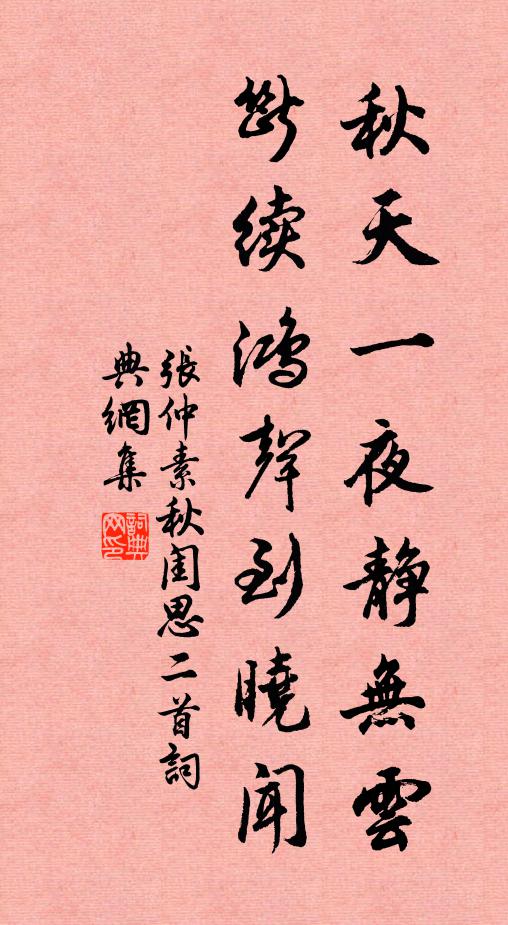 秋天一夜静無雲
斷续鴻聲到曉闻
張仲素秋闺思二首詞
典網集
詞典網印